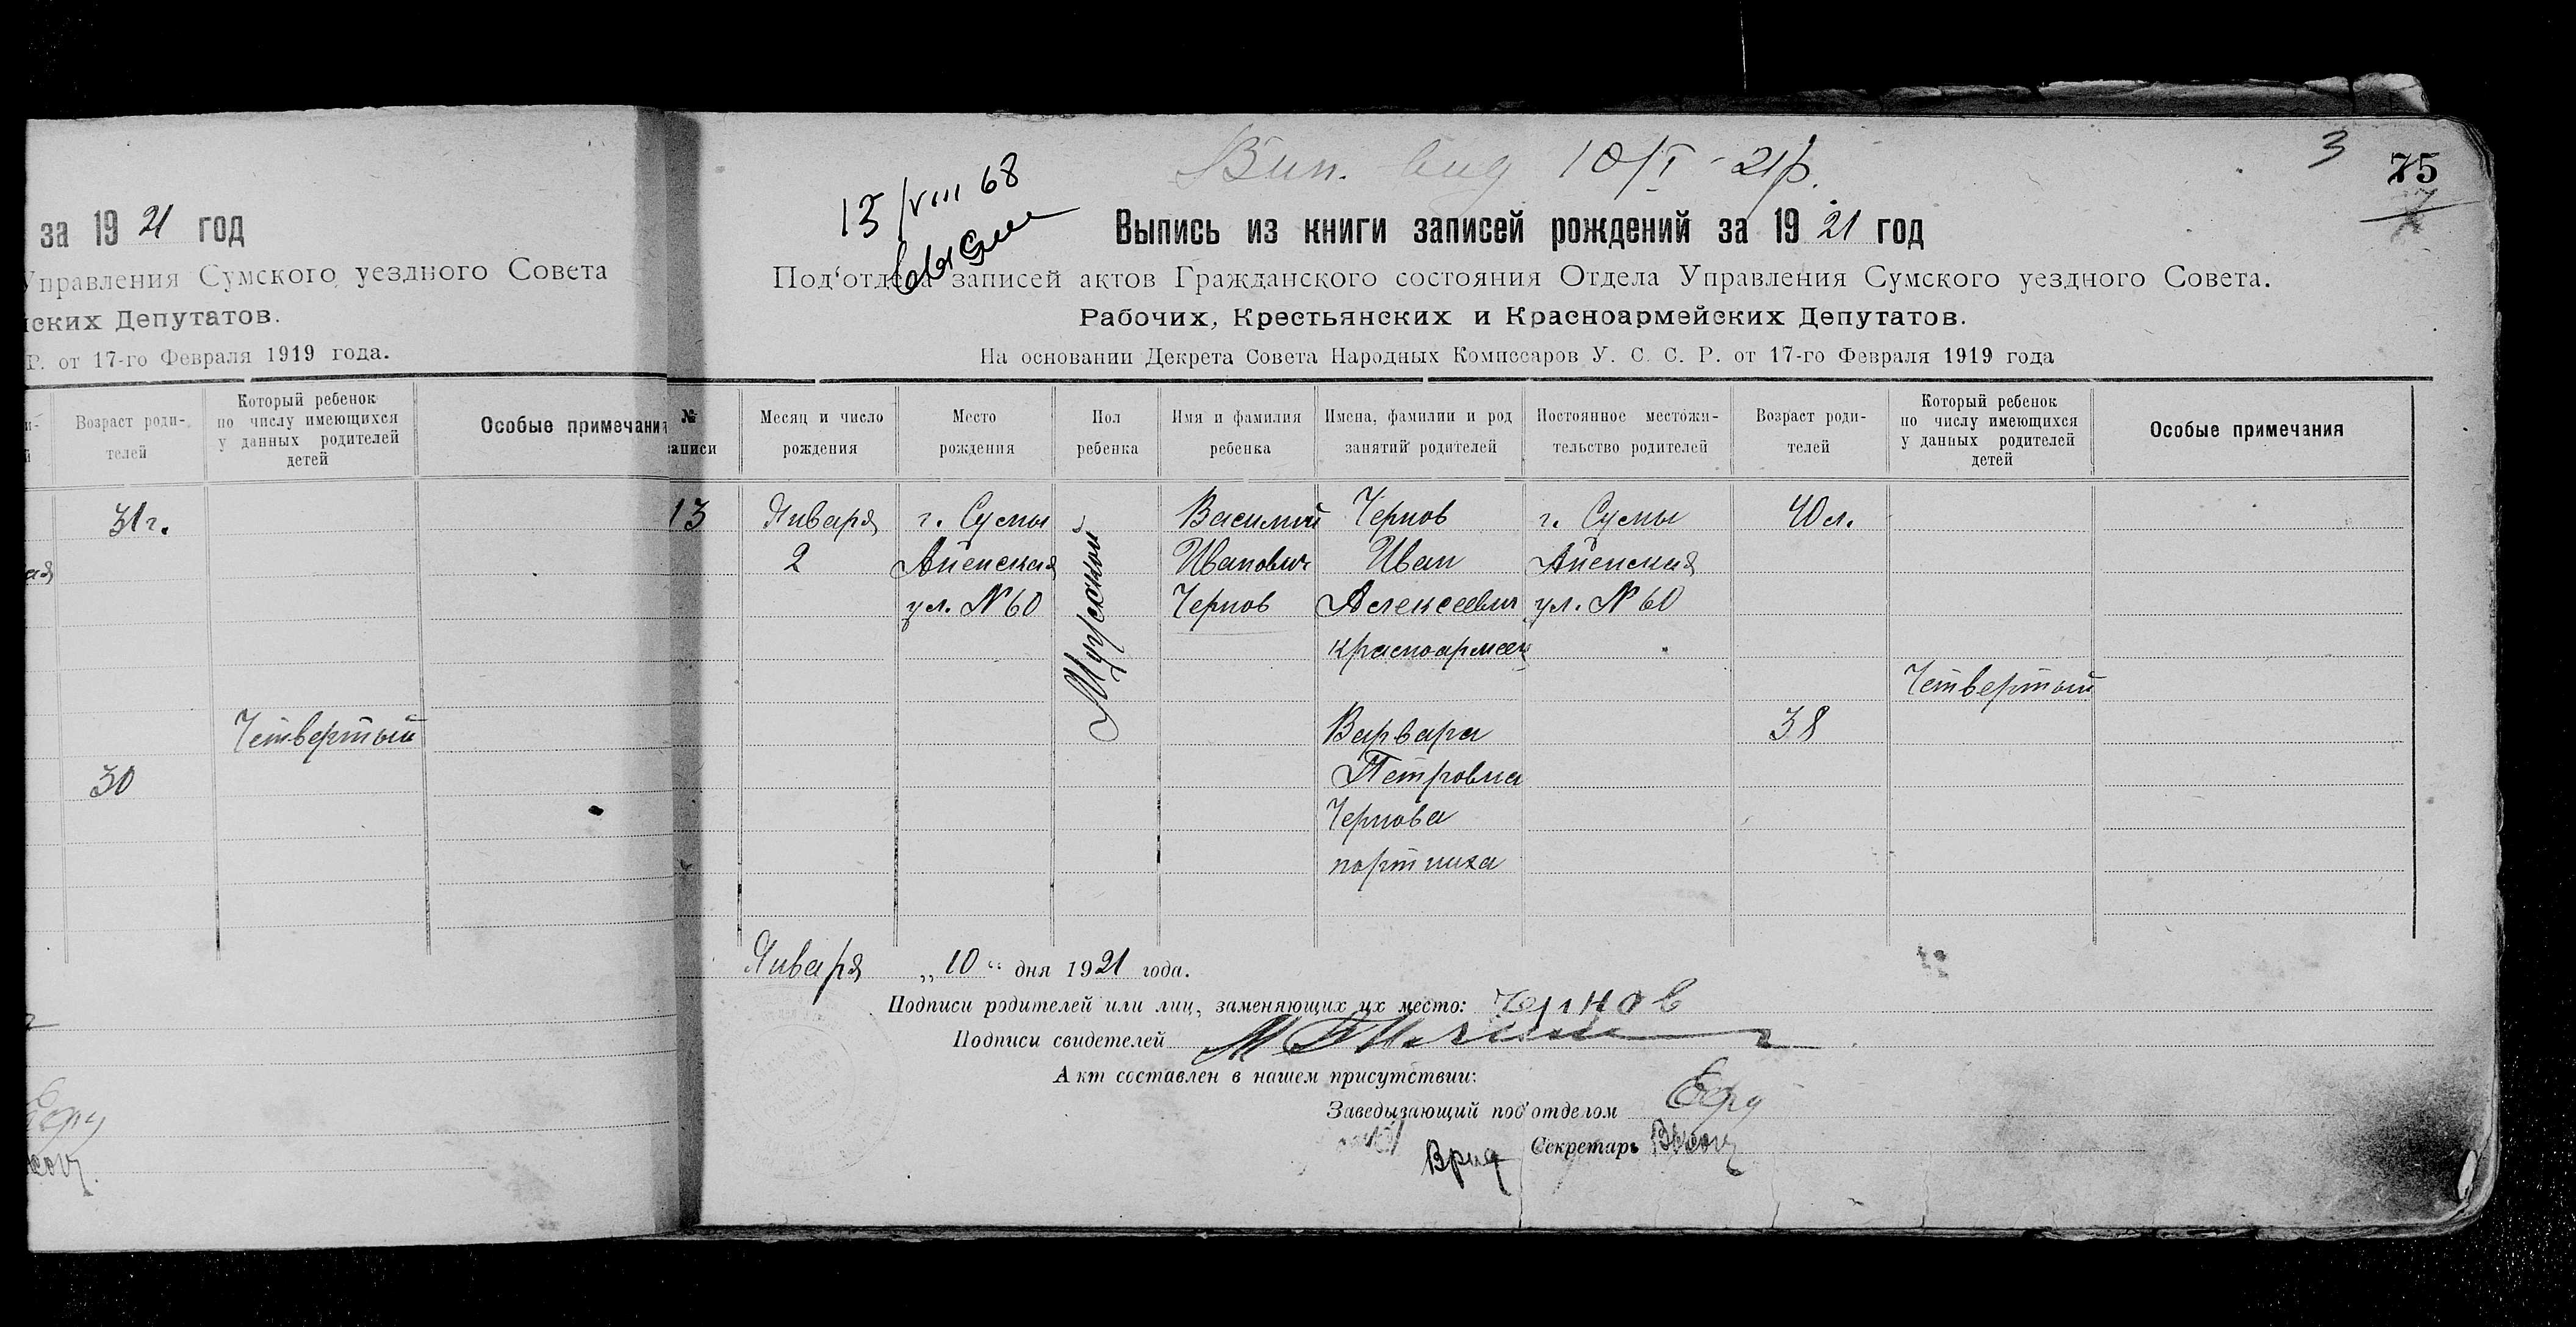 за 1921 год
Управления Сумского уездного Совета
нских Депутатов.
Р. от 17-го Февраля 1919 года.
Возраст роди-
телей
Который ребенок
по числу имеющихся
у данных родителей
детей
Особые примечани
31 г.
Четвертый
30
Вип. вид 10/I - 21р.
3
75
13/VIII 68
Выпись из книги записей рождений за 1921 год
Под'отдела записей актов Гражданского состояния Отдела Управления Сумского уездного Совета.
Рабочих, Крестьянских и Красноармейских Депутатов.
На основании Декрета Совета Народных Комиссаров У. С. С. Р. от 17-го Февраля 1919 года
№
записи
Месяц и число
рождения
Место
рождения
Пол
ребенка
Имя и фамилия
ребенка
Имена, фамилии и род
занятий родителей
Постоянное местожи-
тельство родителей
Возраст роди-
телей
Который ребенок
по числу имеющихся
у данных родителей
детей
Особые примечания
13 Января г. Сумы Мужской Василий Чернов г. Сумы 40 л.
2 Иванович Иван
ул. № 60 Чернов Алексеевич ул. № 60
красноармеец
Четвертый
Варвара 38
Петровна
Чернова
портниха
Января „10“ дня 1921 года.
Подписи родителей или лиц, заменяющих их место: Чернов
Подписи свидетелей
Акт составлен в нашем присутствии:
Заведызающий под'отделом
Врид Секретарь